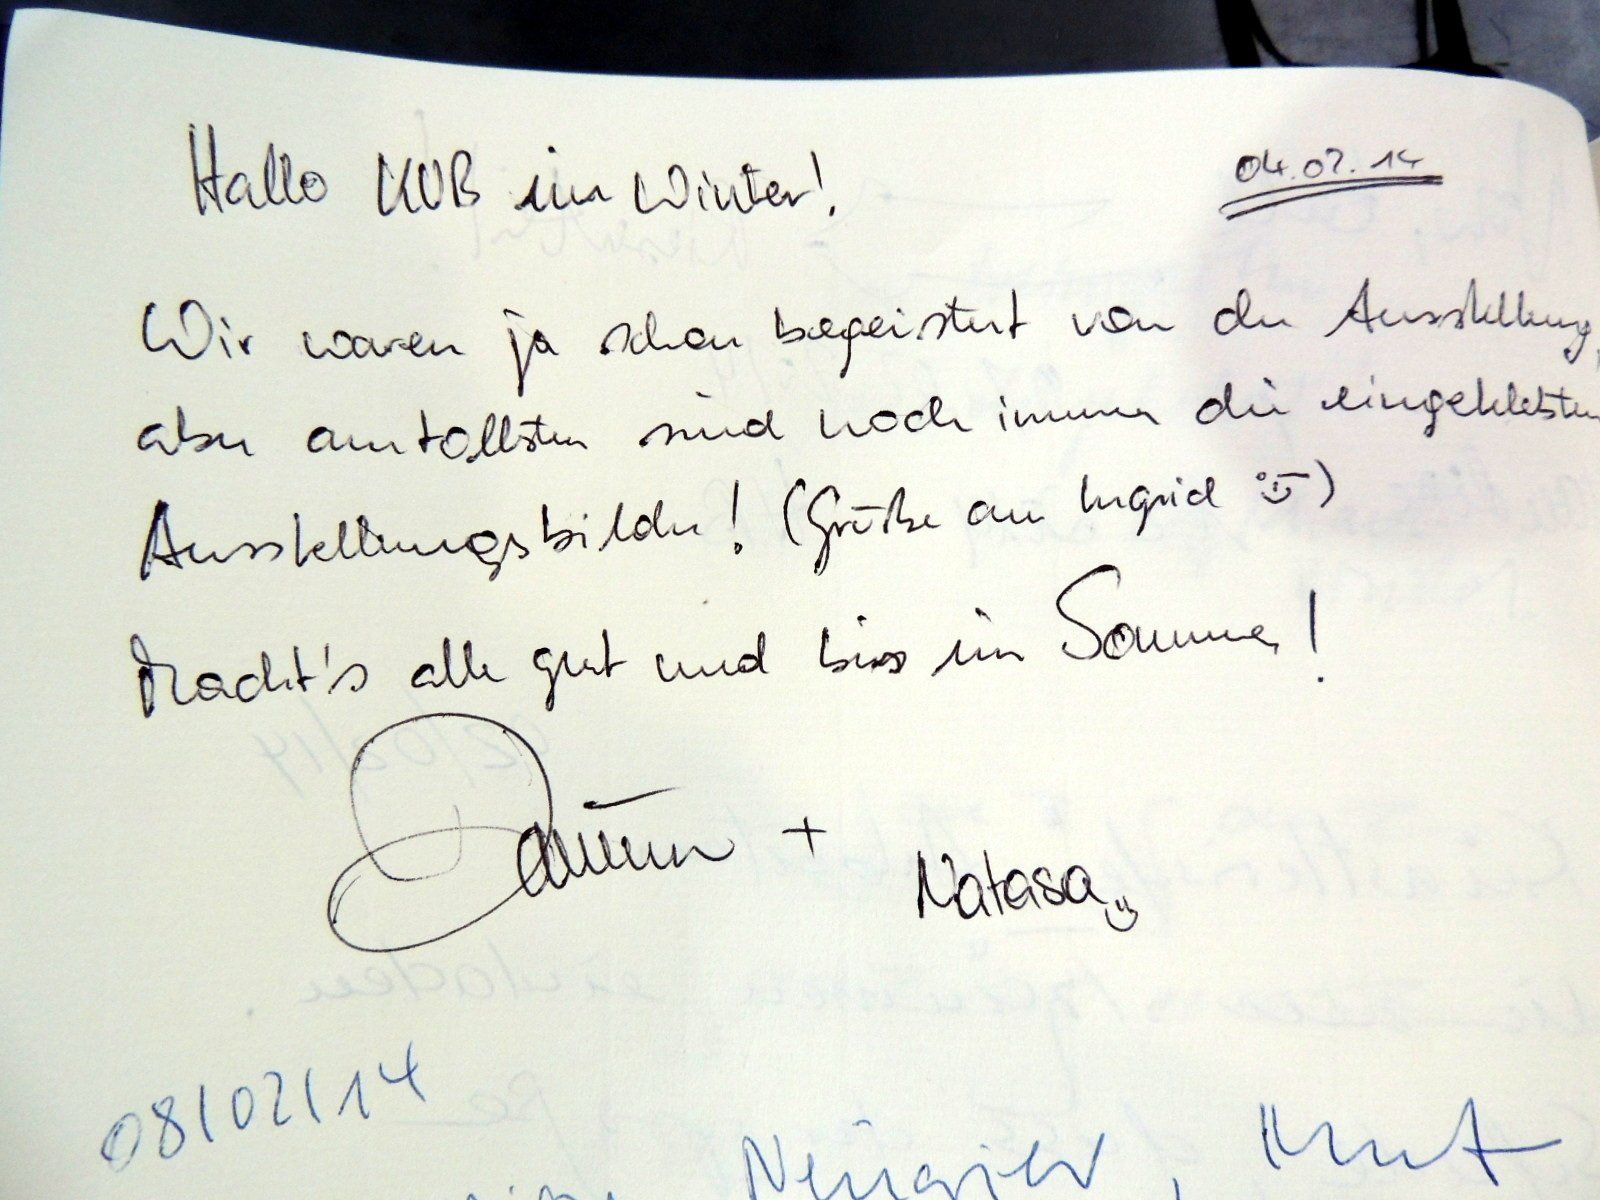 Hallo KUB im Winter!
04.02.14
Wir waren ja schon begeistert von der Ausstellung,
aber am tollsten sind noch immer die eingeklebten
Ausstellungsbilder! (Grüße an Ingrid :))
Macht's alle gut und bis im Sommer!
+
Natasa
08/02/14